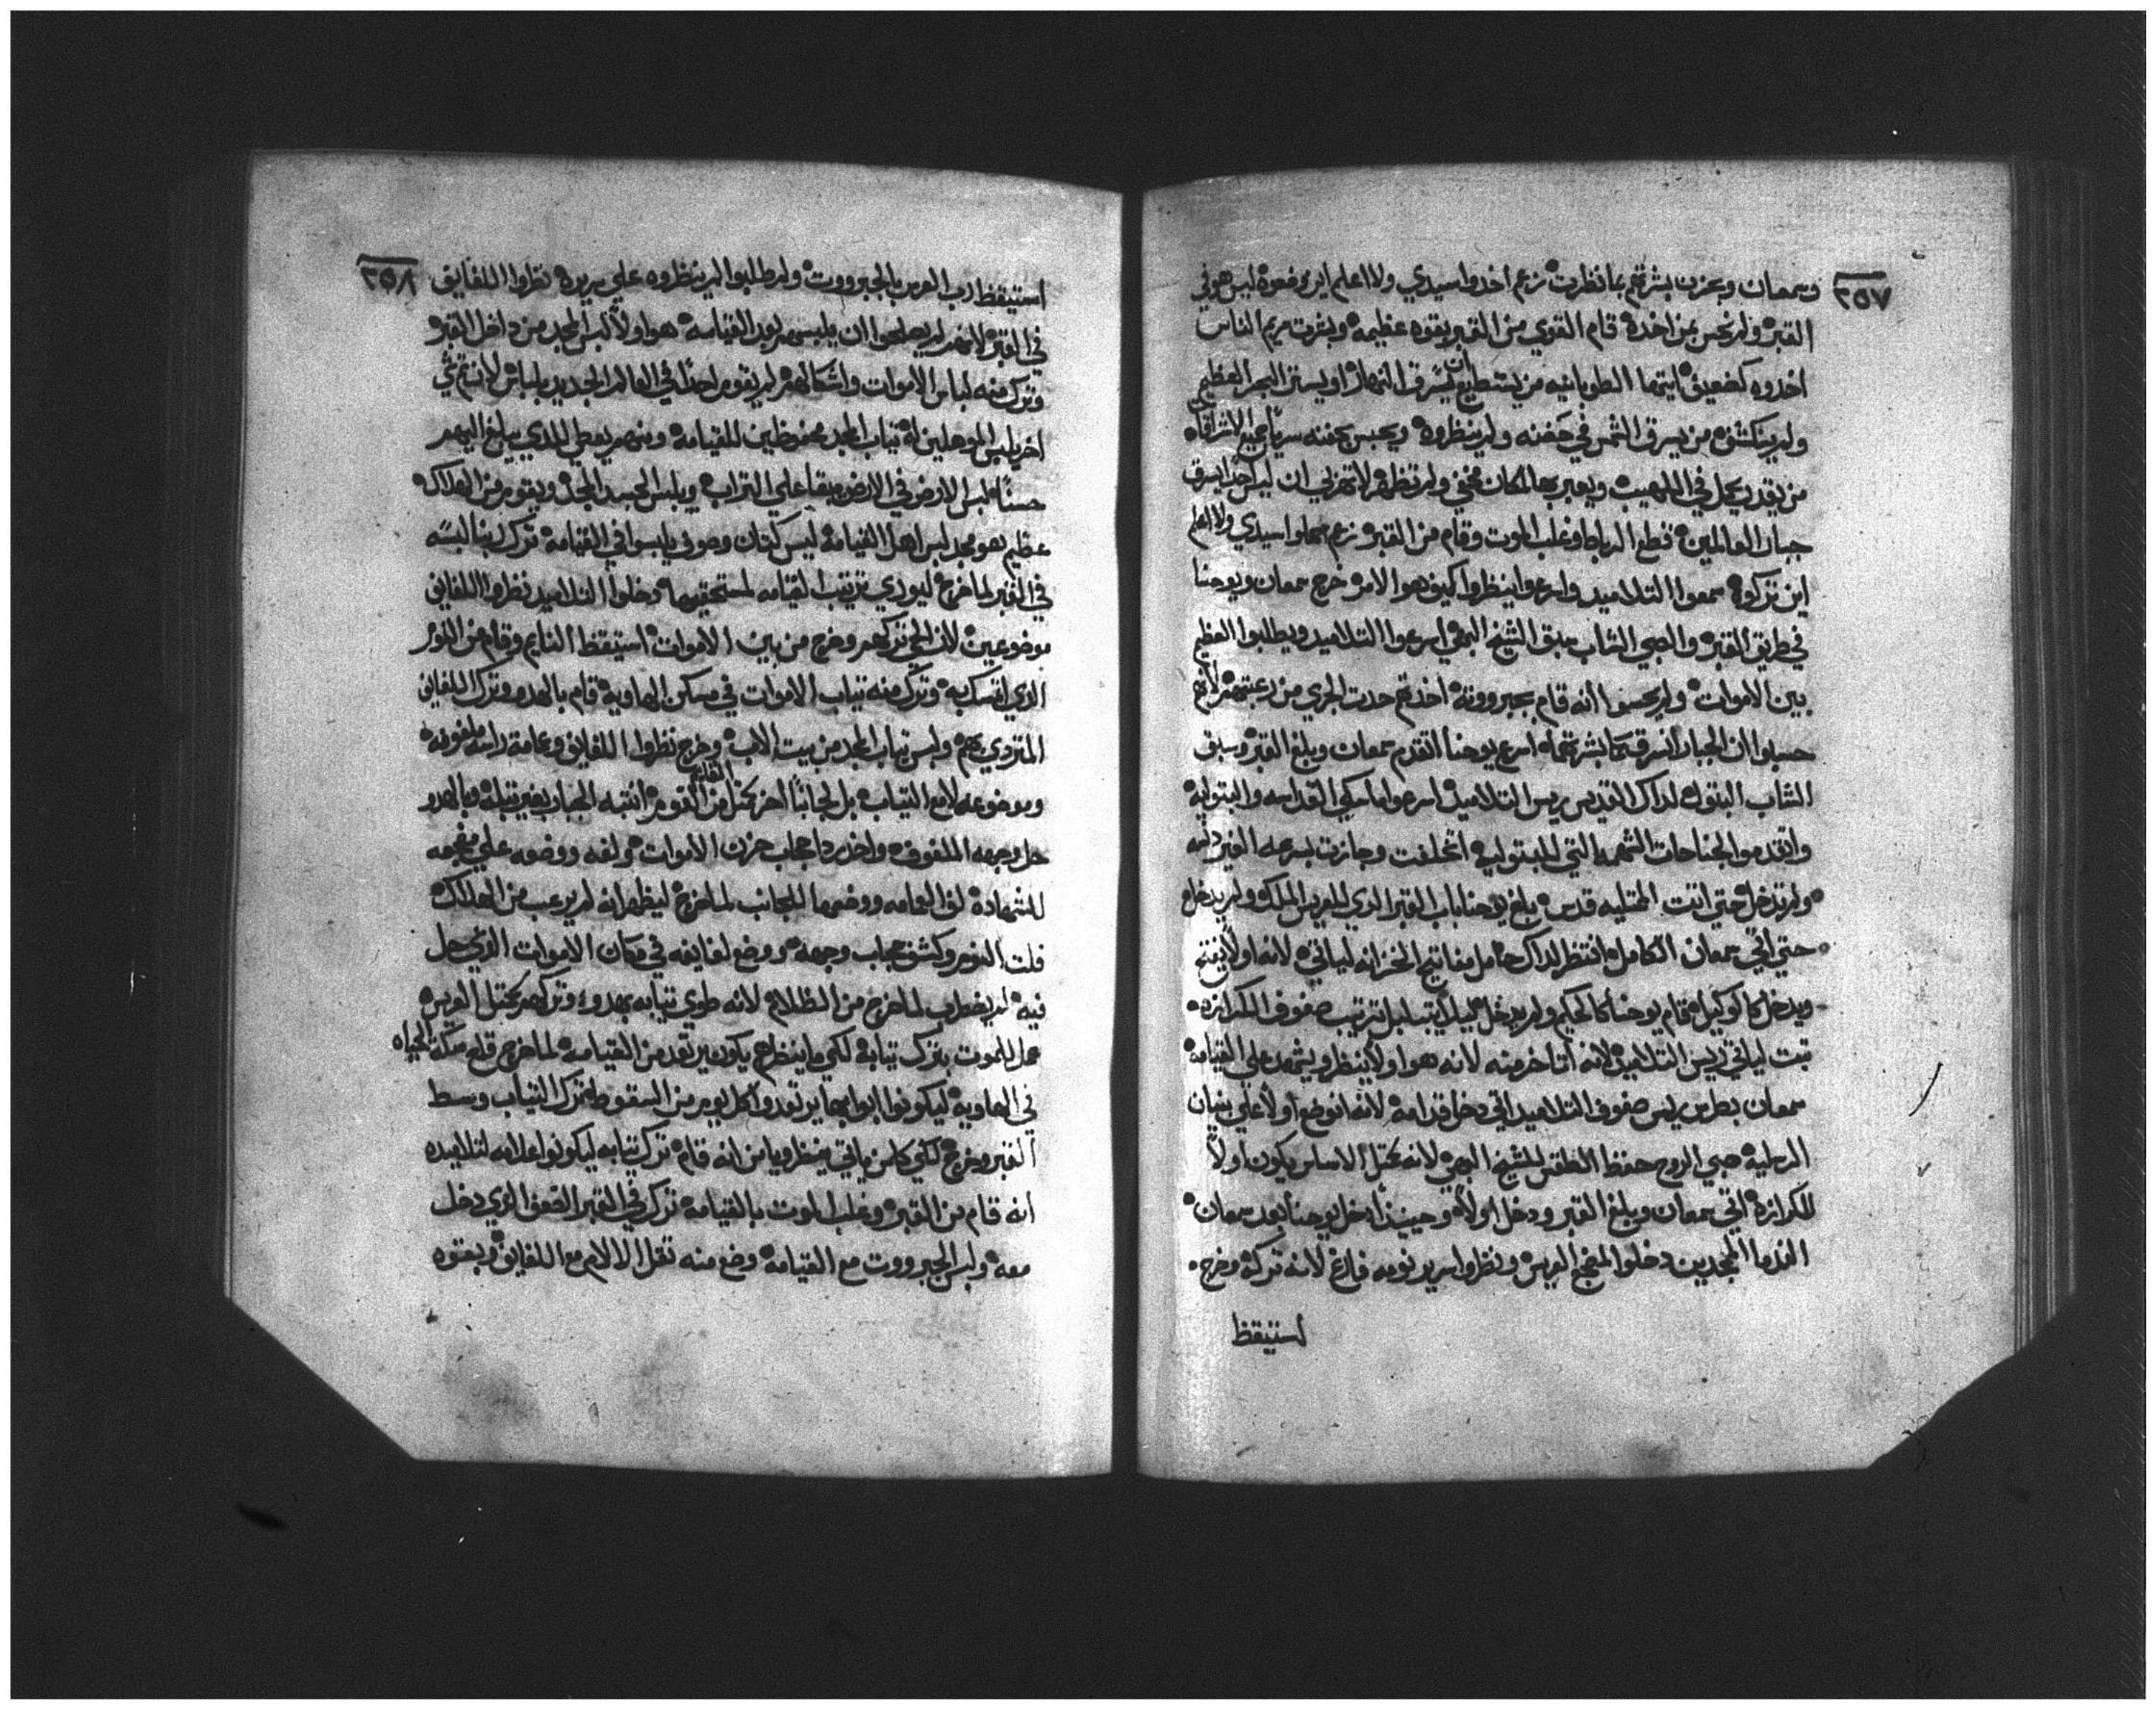 ٢٥٧
وسمعان وبحزن بشرتهم بما نظرت زعم اخدوا سيدي ولا اعلم اين وضعوه ليس هو في
القبر ولم نحس بمن اخده قام القوي من القبر بقوه عظيمه وبشرت مريم الناس
اخدوه كضعيف ايتها الطوبانيه من يستطيع ان يسرق النهار او يستر البحر العظيم
ولم ينكشف من يسرق الشمس في حضنه ولم ينظروه ويحبس بحفنه سرياً جميع الاشراقات
من يقدر يحمل في اللهيب ويعبر بها لمكان مخفي ولم تظهر لا تحزني ان ليس احداً يسرق
جبار العالمين قطع الرباط وغلب الموت وقام من القبر زعم حملوا سيدي ولا اعلم
اين تركوه سمعوا التلاميد واسرعوا لينظروا كيف هوا الامر خرج سمعان ويوحنا
في طريق القبر والصبي الشاب سبق الشيخ البهي اسرعوا التلاميد ويطلبوا العظيم
بين الاموات ولم يحسوا انه قام بجبرووته اخدتهم حدت الجري من رعبتهم لانهم
حسبوا ان الجبار انسرق كما بشرتهما اسرع يوحنا اتقدم سمعان وبلغ القبر وسبق
الشاب البتول لداك القديس ريس التلاميد اسرعوا ماسكي القداسه والبتوليه
واتقدموا الجناحات الشهمه التي للبتوليه اتخلفت وجازت بسرعه الغير دنسه
ولم تدخل حتي اتت الممتليه قدس بلغ يوحنا باب القبر الدي للعريس الملك ولم يدخل
حتي اتي سمعان الكامل انتظر لداك حامل مفاتيح الخزانه لياتي لانه اولاً يفتح
ويدخل كالوكيل قام يوحنا كالحكيم ولم يدخل كيلا يتبلبل ترتيب صفوف الكرازه
تبت لياتي ريس التلاميد لانه اتاخر منه لانه هو اولاً ينظر ويشهد علي القيامه
سمعان بطرس ريس صفوف التلاميد اتي دخل قدامه لانه اتوضع اولاً علي بنيان
الرسليه صبي الروح حفظ الطقس للشيخ البهي لانه بمتل الاساس يكون اولاً
للكرازه اتي سمعان وبلغ القبر ودخل اولاً وحينيذ ادخل يوحنا بعد سمعان
القدما الممجدين دخلوا لمضجع العريس ونظروا سرير نومه فارغ لانه تركه وخرج
استيقظ
٢٥٨
استيقظ رب العرس بالجبرووت ولم طلبوا لم ينظروه علي سريره نظروا اللفايف
في القبر لانهم لم يصلحوا ان يلبسهم بعد القيامه هو اولاً لبس المجد من داخل القبر
وترك منه لباس الاموات واشكالهم لم يقوم احداً في العالم الجديد بلباس لان تم شي
اخر يلبس الموهلين له تياب المجد محفوظين للقيامه ومنهم يعطي للدي يبلغ اليهم
حسناً لبس الارض في الارض يبقا علي التراب ويلبس الجسد المجد ويقوم من الهلاك
عظيم هو مجد لبس اهل القيامه ليس كتان وصوف يلبسوا في القيامه ترك ربنا لبسه
في القبر لما خرج ليوري ترتيب القيامه لمستحقيها دخلوا التلاميد نظروا اللفايف
موضوعين لان الحي تركهم وخرج من بين الاموات استيقظ النايم وقام من النوم
الدي اتمسك به وترك منه تياب الاموات في مسكن الهاويه قام بالهدو وترك اللفايف
المتردي بهم ولبس تياب المجد من بيت الاب وخرج نظروا اللفايف وعمامة راسه ملفوفه
وموضوعه لا مع التياب بل لجانباً اخر بمتل من القايم النوم انتبه الجبار بغير تبلبل وبالهدو
حل وجهه الملفوف واخذ ردا حجاب حزن الاموات ولفه ووضعه علي مضجعه
للشهاده لف العمامه ووضعها للجانب لما خرج ليظهر انه لم يرعب من الهلاك
فلت النوم وكشف حجاب وجهه ووضع لفايفه في مكان الاموات الدي حل
فيه لم يضطرب لما خرج من الظلام لانه طوي تيابه بهدو وتركهم بمتل العريس
عمل للموت بترك تيابه لكي ما ينظرهم يكون يرتعد من القيامه لما خرج قلع سكة الحياه
في الهاويه ليكونوا ابوابها يرتعدوا كل يوم من السقوط ترك التياب وسط
القبر وخرج لكي كل من ياتي ينظر ويامن انه قام ترك تيابه ليكونوا علامه لتلاميده
انه قام من القبر وغلب الموت بالقيامه ترك في القبر الضعف الدي دخل
معه ولبس الجبرووت مع القيامه وضع منه تقل الالام مع اللفايف وبقوه